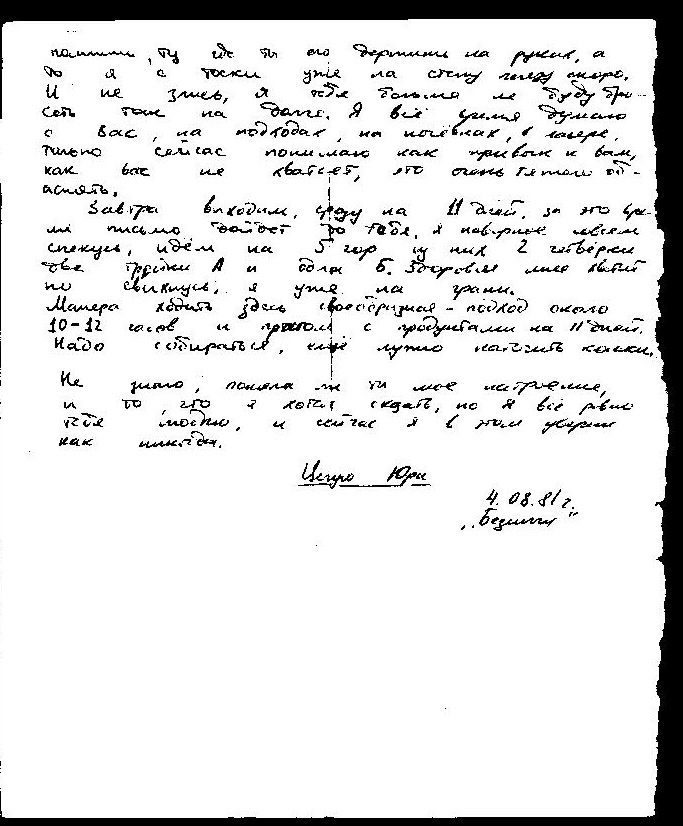 помнишь, ту где ты его держишь на руках, а
то я с тоски уже на стену лезу скоро.
И не злись, я тебя больше не буду бро-
сать так на долго. Я всё время думаю
о вас, на подходах, на ночёвках, в лагере,
только сейчас понимаю как привык к вам,
как вас не хватает, это очень тяжело об-
яснять.
Завтра выходим, сразу на 11 дней, за это вре-
мя письмо дойдёт до тебя, я наверное совсем
спекусь, идём на 5 гор из них 2 четвёрки
две тройки А и одна Б. Здоровья мне хватит
но свихнусь, я уже на грани.
Манера ходить здесь своеобразная - подход около
10-12 часов и притом с продуктами на 11 дней.
Надо собираться, ещё нужно наточить кошки.
Не знаю, поняла ли ты моё настроение,
и то, что я хотел сказать, но я всё равно
тебя люблю, и сейчас я в этом уверен
как никогда.
Целую Юра
4.08.81 г.
„Безинги"